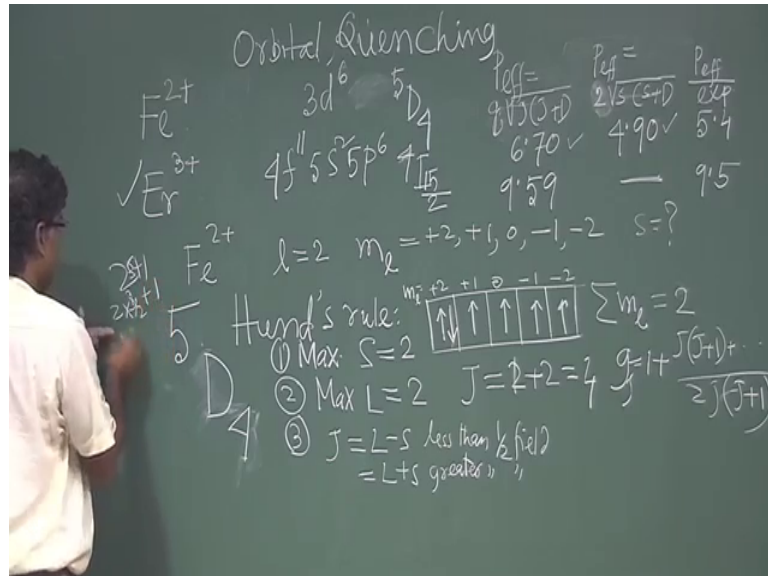 Orbital Quenching
Fe²⁺ 3d⁶ ⁵D₄ Peff = g√J(J+1) Peff = 2√S(S+1) Peff exp
6.70 ✓ 4.90 ✓ 5.4
✓ Er³⁺ 4f¹¹ 5s² 5p⁶ ⁴I₁₅/₂ 9.59 — 9.5
Fe²⁺ l = 2 mₗ = +2, +1, 0, -1, -2 S = ?
2s+1
mₗ= +2 +1 0 -1 -2
5 Hund's rule: ↑↓ ↑ ↑ ↑ ↑ Σmₗ = 2
① Max. S = 2
D ② Max L = 2 J = 2+2 = 4 g = 1 + J(J+1) + ... / 2J(J+1)
4 ③ J = L-S less than ½ field
= L+S greater " "